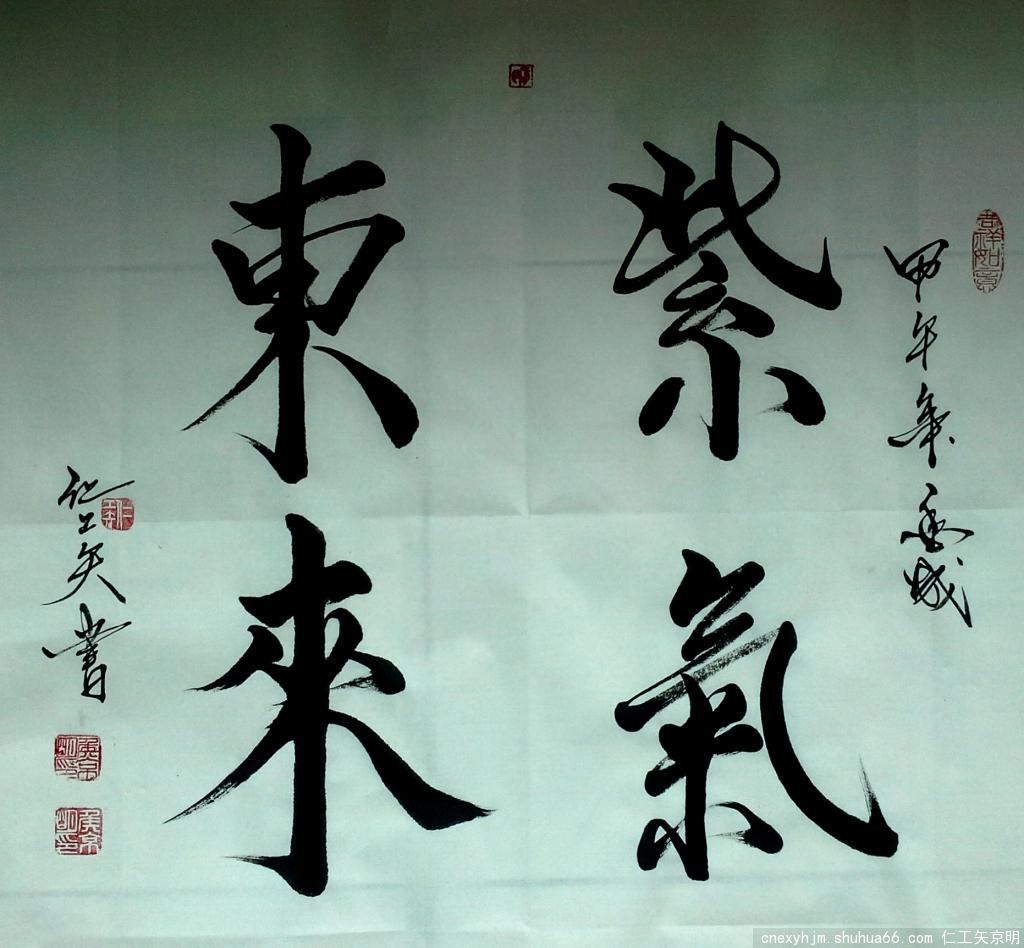 紫氣
東來
甲午年
吉祥如意
仁工矢書
cnexyhjm.shuhua66.com 仁工矢京明